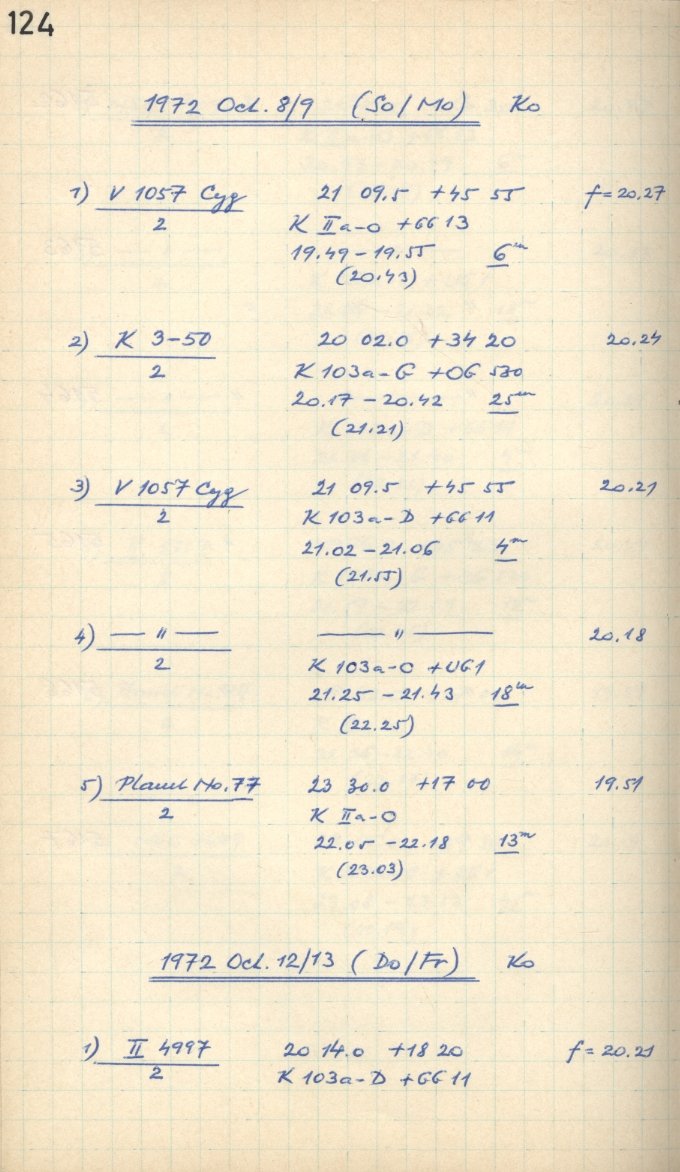 124
1972 Oct. 8/9 (So/Mo) Ko
1) V 1057 Cyg 21 09.5 +45 55 f = 20.27
2 K IIa-O + GG 13
19.49 - 19.55 6m
(20.43)
2) K 3-50 20 02.0 +34 20 20.24
2 K 103a-G + OG 530
20.17 - 20.42 25m
(21.21)
3) V 1057 Cyg 21 09.5 +45 55 20.21
2 K 103a-D + GG 11
21.02 - 21.06 4m
(21.55)
4) — " — — " — 20.18
2 K 103a-O + UG1
21.25 - 21.43 18m
(22.25)
5) Planet No. 77 23 30.0 +17 00 19.51
2 K IIa-O
22.05 - 22.18 13m
(23.03)
1972 Oct. 12/13 (Do/Fr) Ko
1) II 4997 20 14.0 +18 20 f = 20.21
2 K 103a-D + GG 11